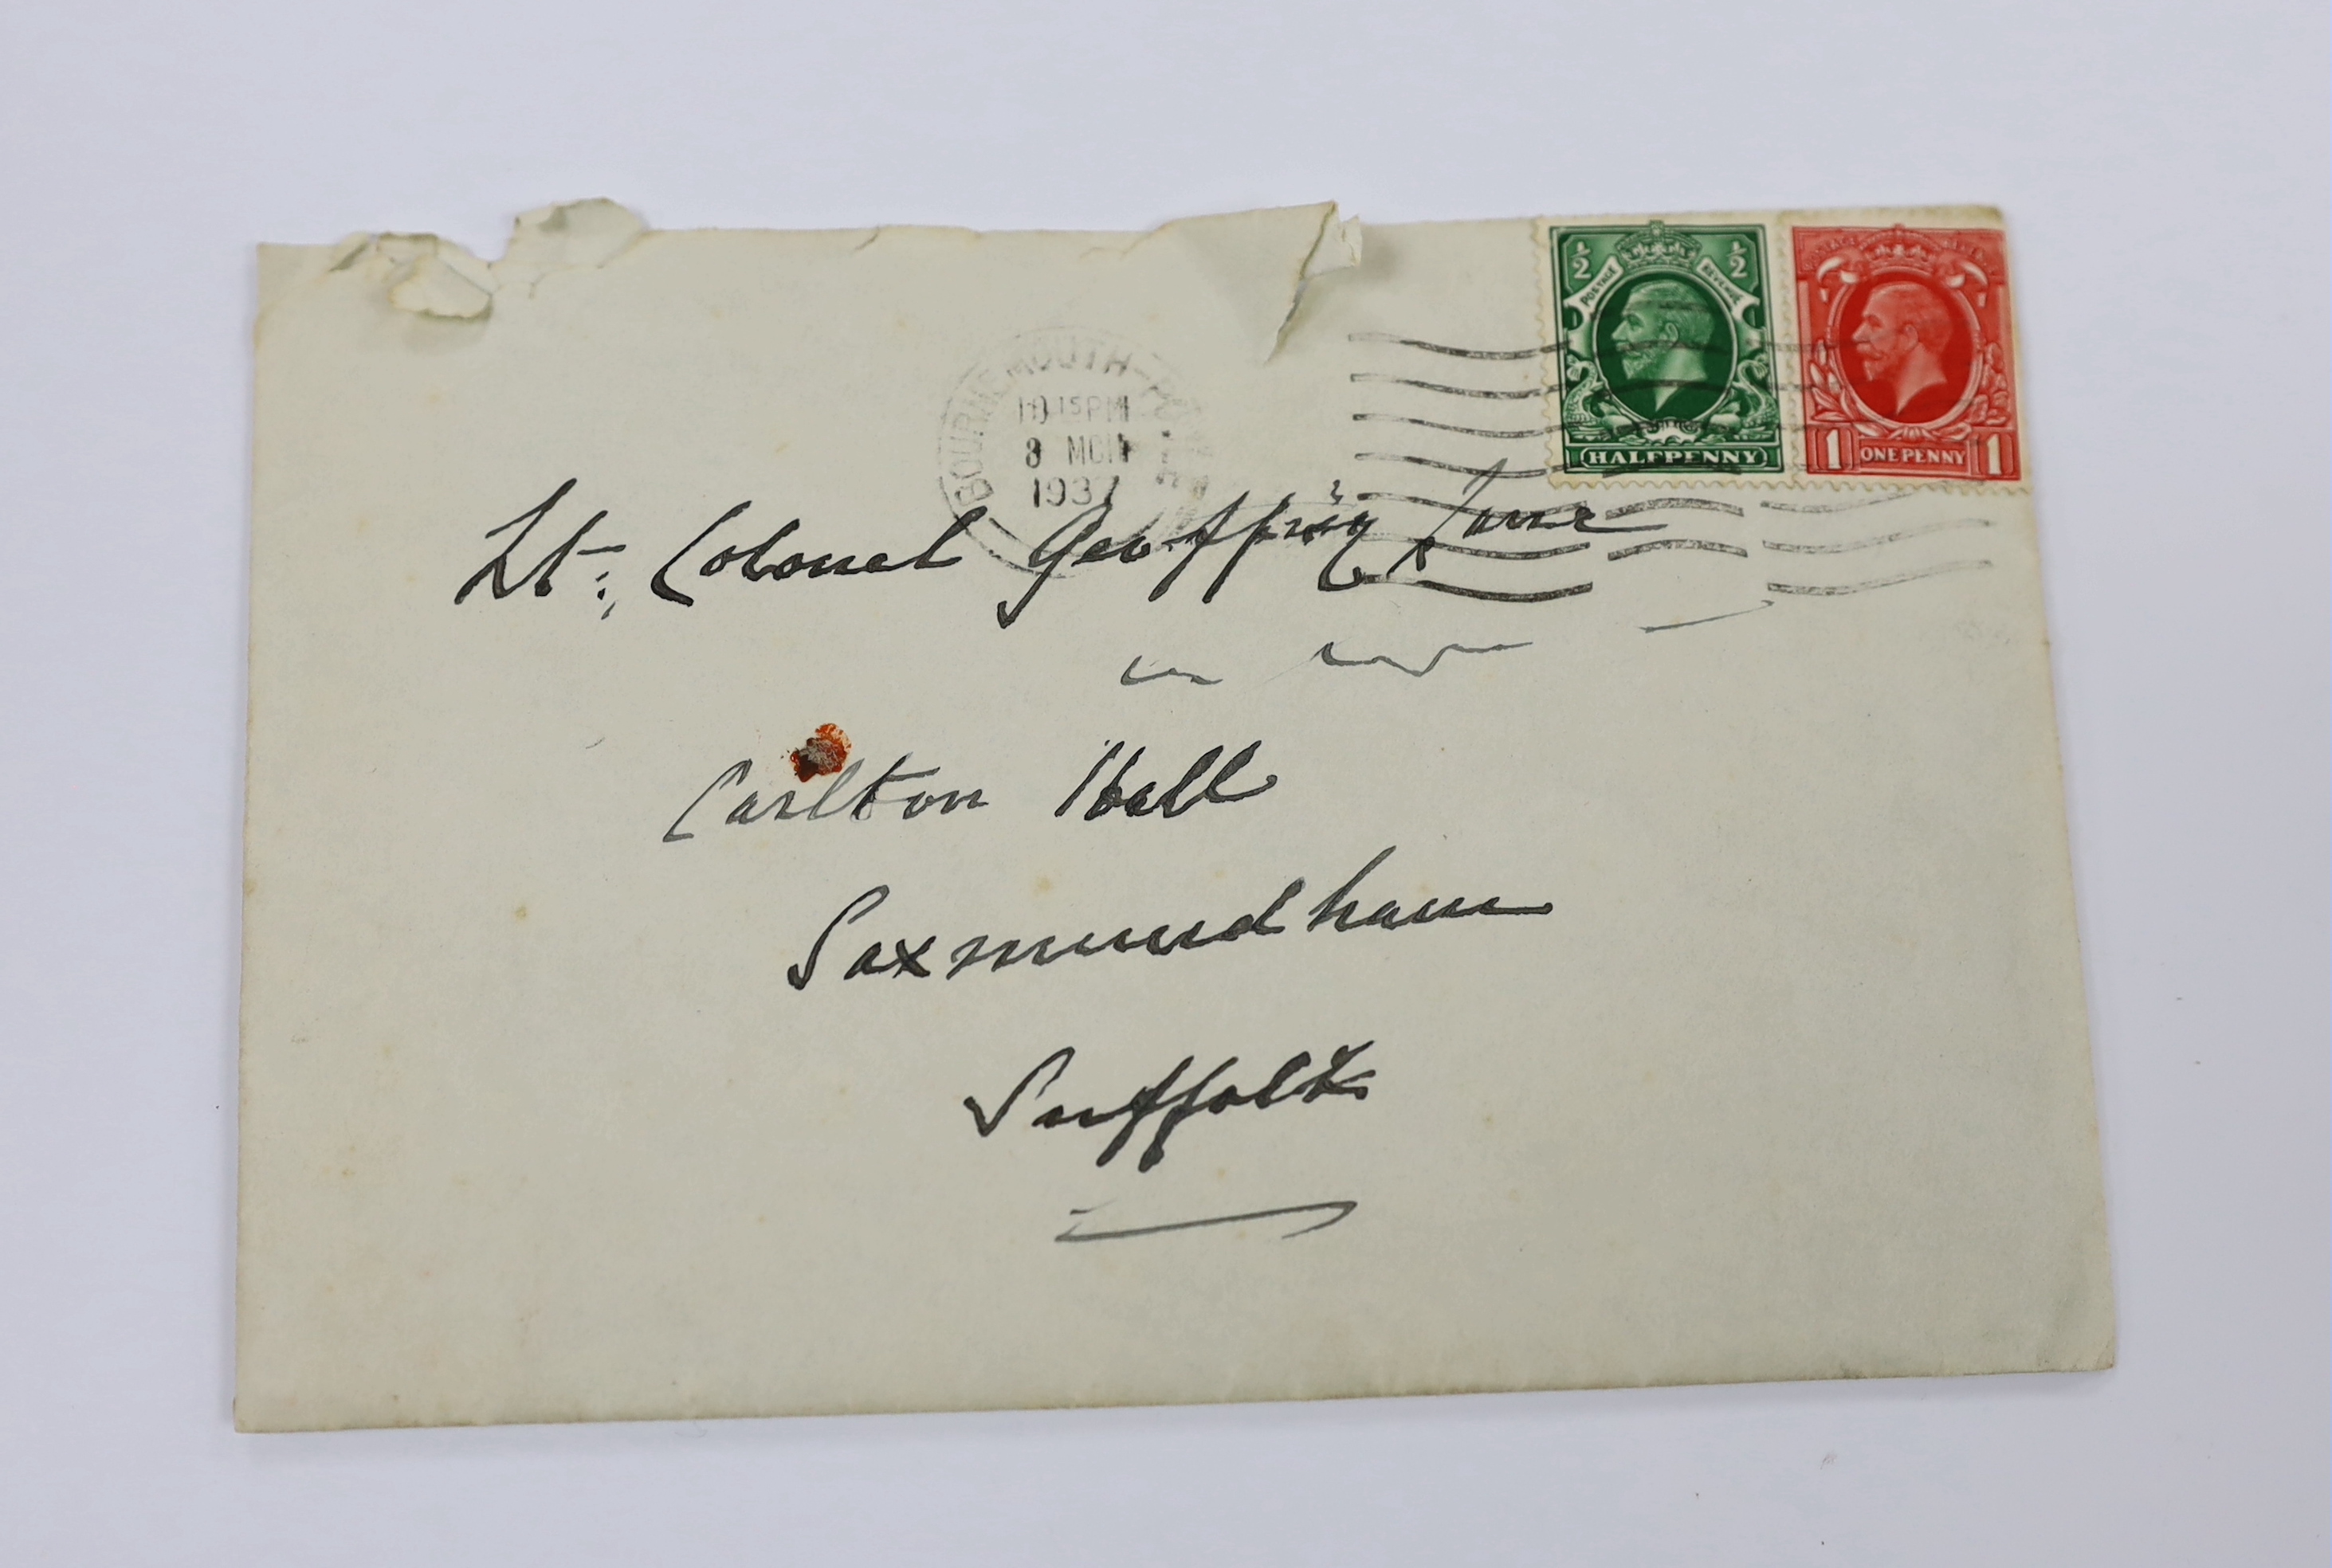 ½ ½
POSTAGE REVENUE
HALFPENNY
POSTAGE REVENUE
1 ONE PENNY 1
BOURNEMOUTH-POOLE
10 15 PM
8 MCH
1937
Lt. Colonel Geoffrey
Carlton Hall
Saxmundham
Suffolk